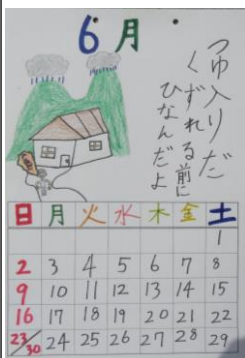 6月
つゆ入りだ
くずれる前に
ひなんだよ
日 月 火 水 木 金 土
1
2 3 4 5 6 7 8
9 10 11 12 13 14 15
16 17 18 19 20 21 22
23/30 24 25 26 27 28 29